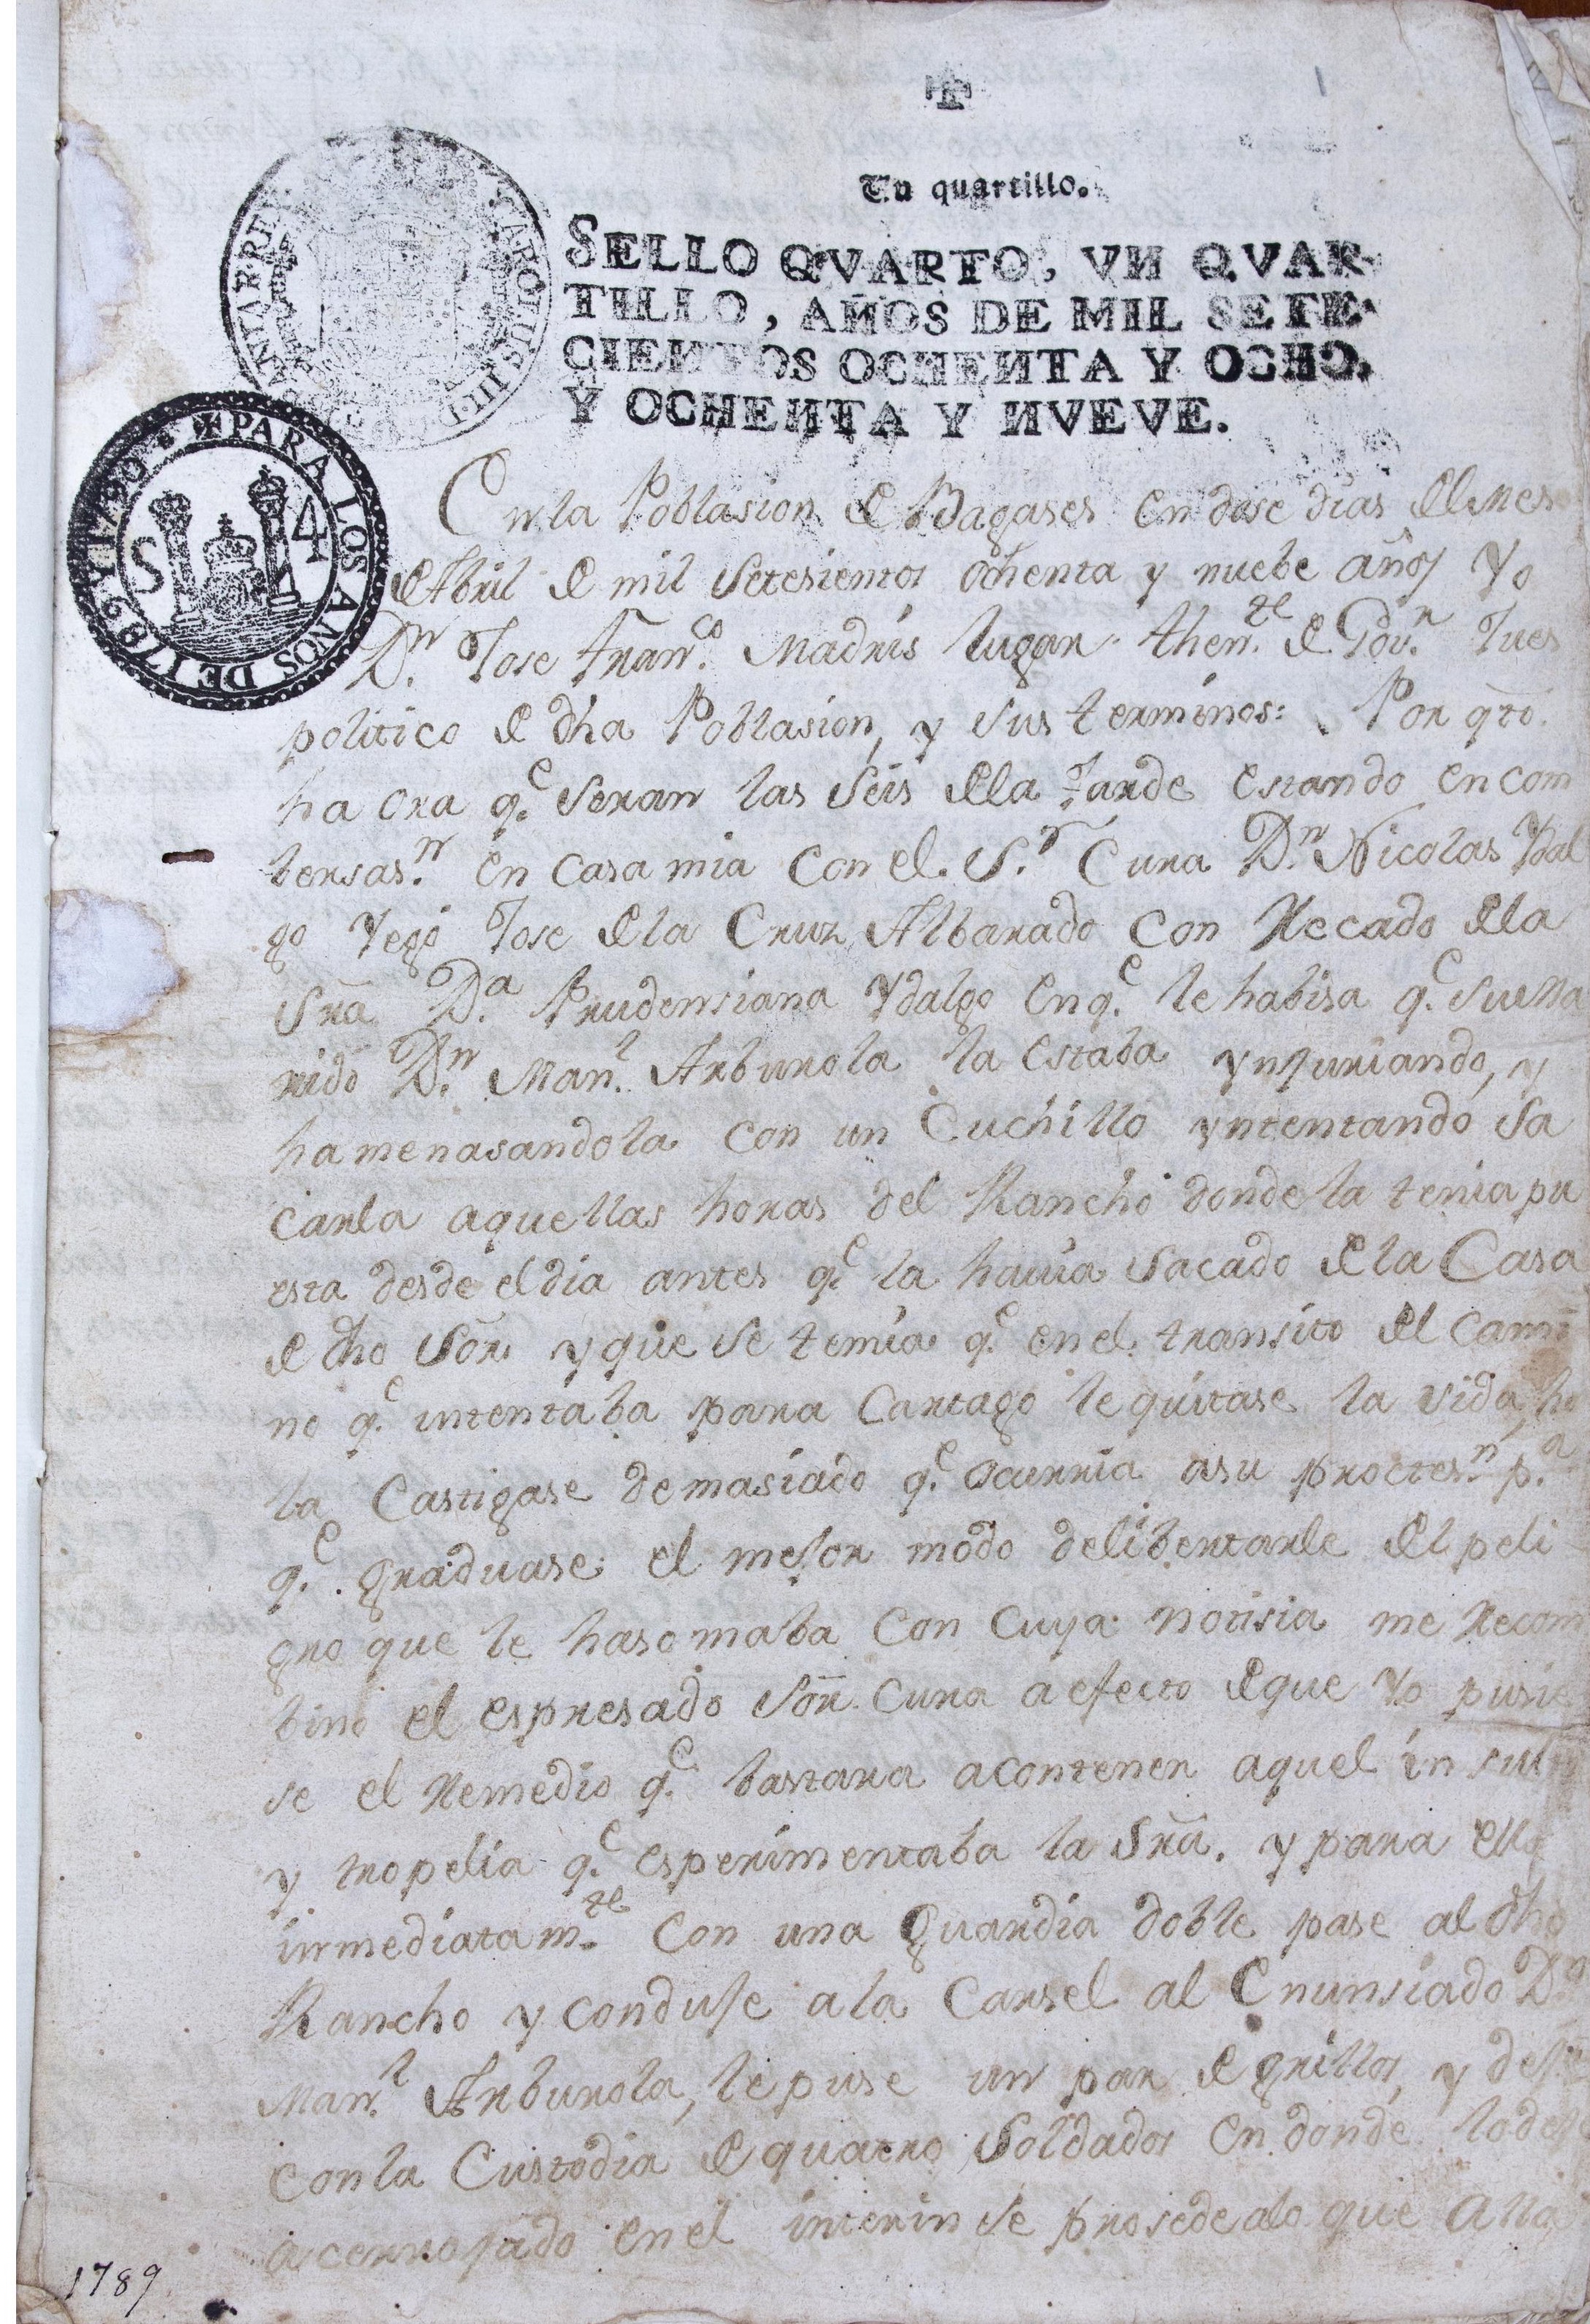 Un quartillo.
SELLO QVARTO, VN QVAR-
TILLO, AÑOS DE MIL SETE-
CIENTOS OCHENTA Y OCHO,
Y OCHENTA Y NVEVE.
CAROLUS III D
✠ PARA LOS AÑOS DE 1789 Y 1790
S 4
En la Poblasion de Bagases en dose dias del Mes
de Abril de mil Setesientos ochenta y nuebe años Yo
Dn. Jose Franco. Madris lugar thente. de Govn. Jues
politico de dha Poblasion, y sus terminos: Por qto.
ha ora qe. seran las seis de la tarde estando en com
bersasn. en casa mia con el Sr. Cura Dn. Nicolas Ydal
go Yegó Jose de la Cruz Albarado con Recado de la
Sra. Da. Prudensiana Ydalgo en qe. le habisa qe. su Ma
rido Dn. Manl. Arburola la estaba ynjuriando, y
hamenasandola con un Cuchillo yntentando sa
carla aquellas horas del Rancho donde la tenia pu
esta desde el dia antes qe. la havia sacado de la Casa
de dho Sor. y que se temia qe. en el transito del cami
no qe. intentaba para Cartago le quitase la vida, ho
la Castigase demasiado qe. ocurria a su protesn. pa.
qe. graduase el mejor modo de libertarle del peli
gro que le hasomaba con cuya notisia me Recom
bino el espresado Sor. Cura a efecto de que Yo pusie
se el Remedio qe. bastara a contener aquel insul
y tropelia qe. esperimentaba la Sra. y para ello
inmediatamte. con una Guardia doble pase al dho
Rancho y conduje a la Carsel al Enunsiado Dn.
Manl. Arburola, le puse un par de grillos, y deje
con la Custodia de quatro Soldados en donde lo deje
acerrojado en el interin se prosede a lo que alla
1789